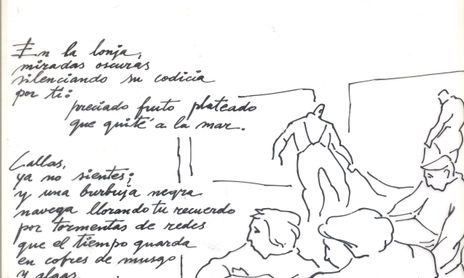 En la lonja,
miradas oscuras
silenciando su codicia
por ti:
preciado fruto plateado
que quité a la mar.
Callas,
ya no sientes;
y una burbuja negra
navega llorando tu recuerdo
por tormentas de redes
que el tiempo guarda
en cofres de musgo
y algas